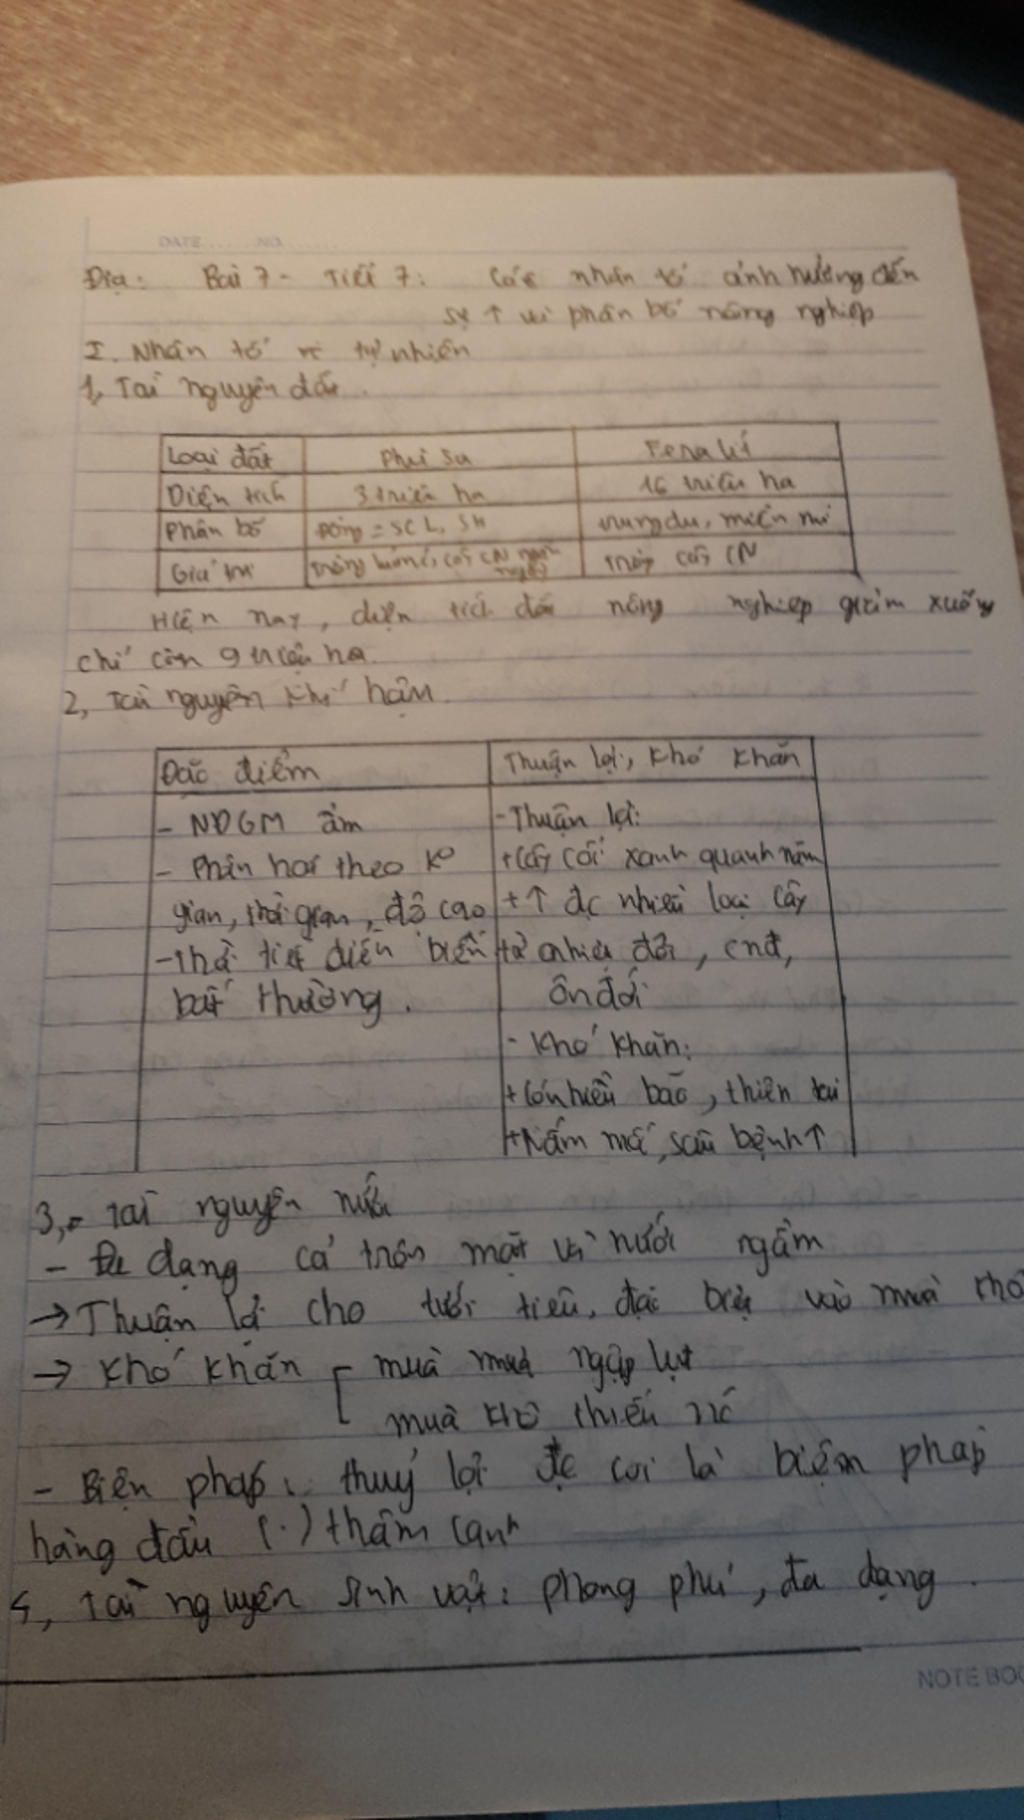 DATE...... NO.......
Địa: Bài 7 - Tiết 7: Các nhân tố ảnh hưởng đến
sự ↑ và phân bố nông nghiệp
I. Nhân tố tự nhiên
1, Tài nguyên đất.
Loại đất | Phù sa | Feralit
Diện tích | 3 triệu ha | 16 triệu ha
Phân bố | Đồng = SCL, SH | trung du, miền núi
Giá trị | trồng cây CN | trồng cây CN
Hiện nay, diện tích đất nông nghiệp giảm xuống
chỉ còn 9 triệu ha.
2, Tài nguyên khí hậu.
Đặc điểm | Thuận lợi, khó khăn
- NĐGM ẩm | - Thuận lợi:
- Phân hoá theo ko | + Cây cối xanh quanh năm
gian, thời gian, độ cao | + ↑ đc nhiều loại cây
- Thời tiết diễn biến | từ nhiệt đới, cnđ,
bất thường. | ôn đới
- Khó khăn:
+ Có nhiều bão, thiên tai
+ Nấm mốc, sâu bệnh ↑
3, Tài nguyên nước
- Đa dạng cả trên mặt và nước ngầm
→ Thuận lợi cho tưới tiêu, đặc biệt vào mùa khô
→ Khó khăn [ mùa mưa ngập lụt
mùa khô thiếu nc
- Biện pháp: thuỷ lợi đc coi là biện pháp
hàng đầu (.) thâm canh
4, Tài nguyên sinh vật: phong phú, đa dạng.
NOTE BOO